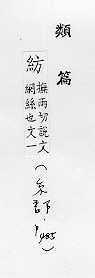 類篇
紡
撫兩切說文
網絲也文一
(糸部下·P485)